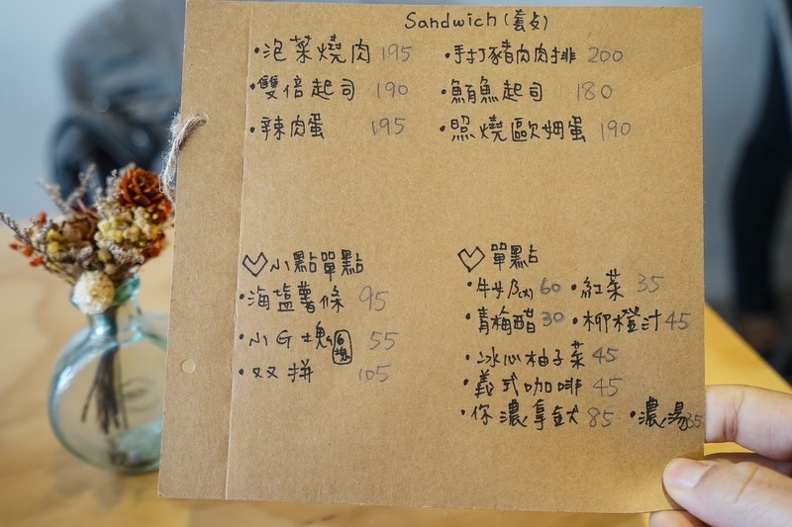 Sandwich(套点)
·泡菜燒肉 195
·手打豬肉肉排 200
·雙倍起司 190
·鮪魚起司 180
·辣肉蛋 195
·照燒歐姆蛋 190
♡小點單點
·海塩薯條 95
·小G塊 6塊 55
·双拼 105
♡單點
·牛奶(冰) 60 ·紅茶 35
·青梅醋 30 ·柳橙汁 45
·冰心柚子茶 45
·義式咖啡 45
·你濃拿鉄 85 ·濃湯 35